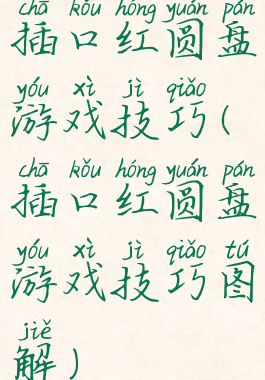 chā kǒu hóng yuán pán
插口红圆盘
yóu xì jì qiǎo
游戏技巧(
chā kǒu hóng yuán pán
插口红圆盘
yóu xì jì qiǎo tú
游戏技巧图
jiě
解)